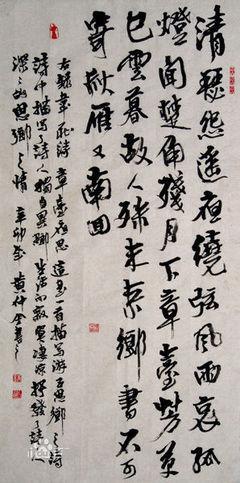 清瑟怨遙夜繞弦風雨哀孤
燈聞楚角殘月下章臺芳草
已雲暮故人殊未来鄉書不可
寄秋雁又南回
韋莊詩章臺夜思這是一首描寫游子思鄉之詩
詩中描寫詩人獨自異鄉生活的寂寞凄涼抒發了詩人
深深的思鄉之情辛卯年黄仲金書